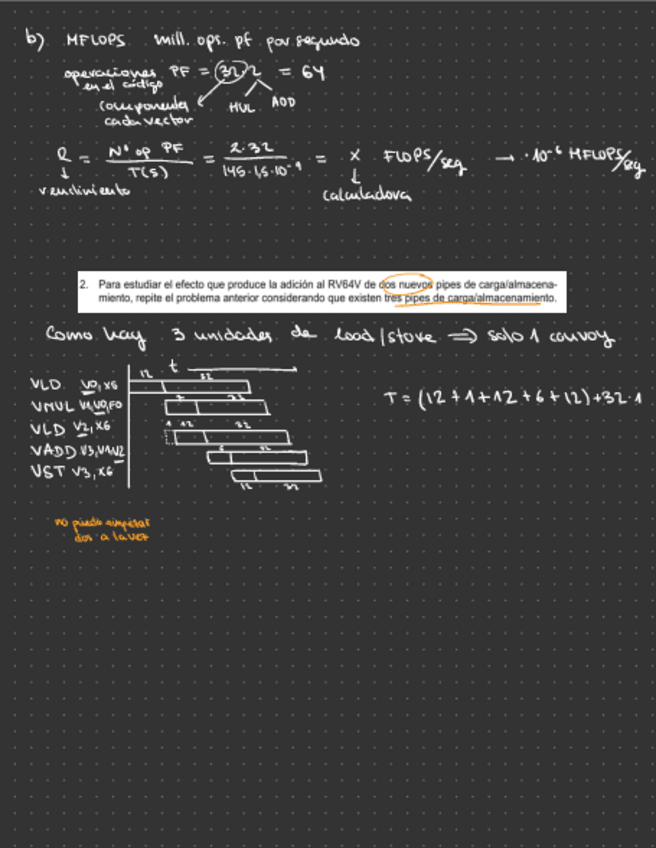 b) MFLOPS mill. ops. pf por segundo
operaciones PF = 32·2 = 64
en el código
componentes MUL ADD
cada vector
R = Nº op PF / T(s) = 2·32 / 145·1,5·10⁻⁹ = X FLOPS/seg → ·10⁻⁶ MFLOPS/seg
rendimiento calculadora
2. Para estudiar el efecto que produce la adición al RV64V de dos nuevos pipes de carga/almacena-
miento, repite el problema anterior considerando que existen tres pipes de carga/almacenamiento.
Como hay 3 unidades de load/store ⇒ solo 1 convoy
t
12 32
VLD V0,X5
T = (12+1+12+6+12)+32·1
VMUL V1,V0,F0
1 12 32
VLD V2,X6
VADD V3,V1,V2
VST V3,X6
12 32
no puedo empezar
dos a la vez